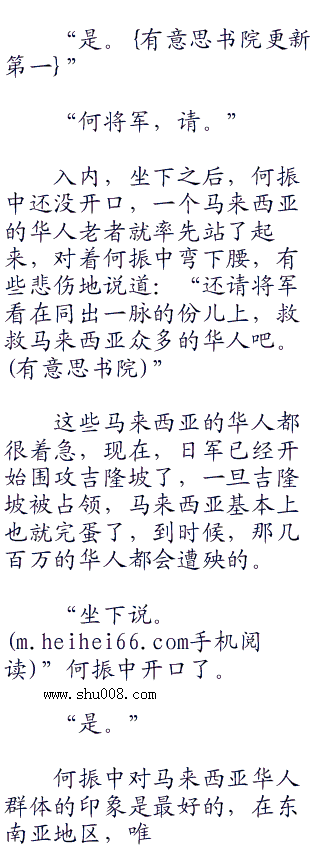 “是。{有意思书院更新
第一}”
“何将军，请。”
入内，坐下之后，何振
中还没开口，一个马来西亚
的华人老者就率先站了起
来，对着何振中弯下腰，有
些悲伤地说道：“还请将军
看在同出一脉的份儿上，救
救马来西亚众多的华人吧。
(有意思书院)”
这些马来西亚的华人都
很着急，现在，日军已经开
始围攻吉隆坡了，一旦吉隆
坡被占领，马来西亚基本上
也就完蛋了，到时候，那几
百万的华人都会遭殃的。
“坐下说。
(m.heihei66.com手机阅
读)”何振中开口了。
www.shu008.com
“是。”
何振中对马来西亚华人
群体的印象是最好的，在东
南亚地区，唯